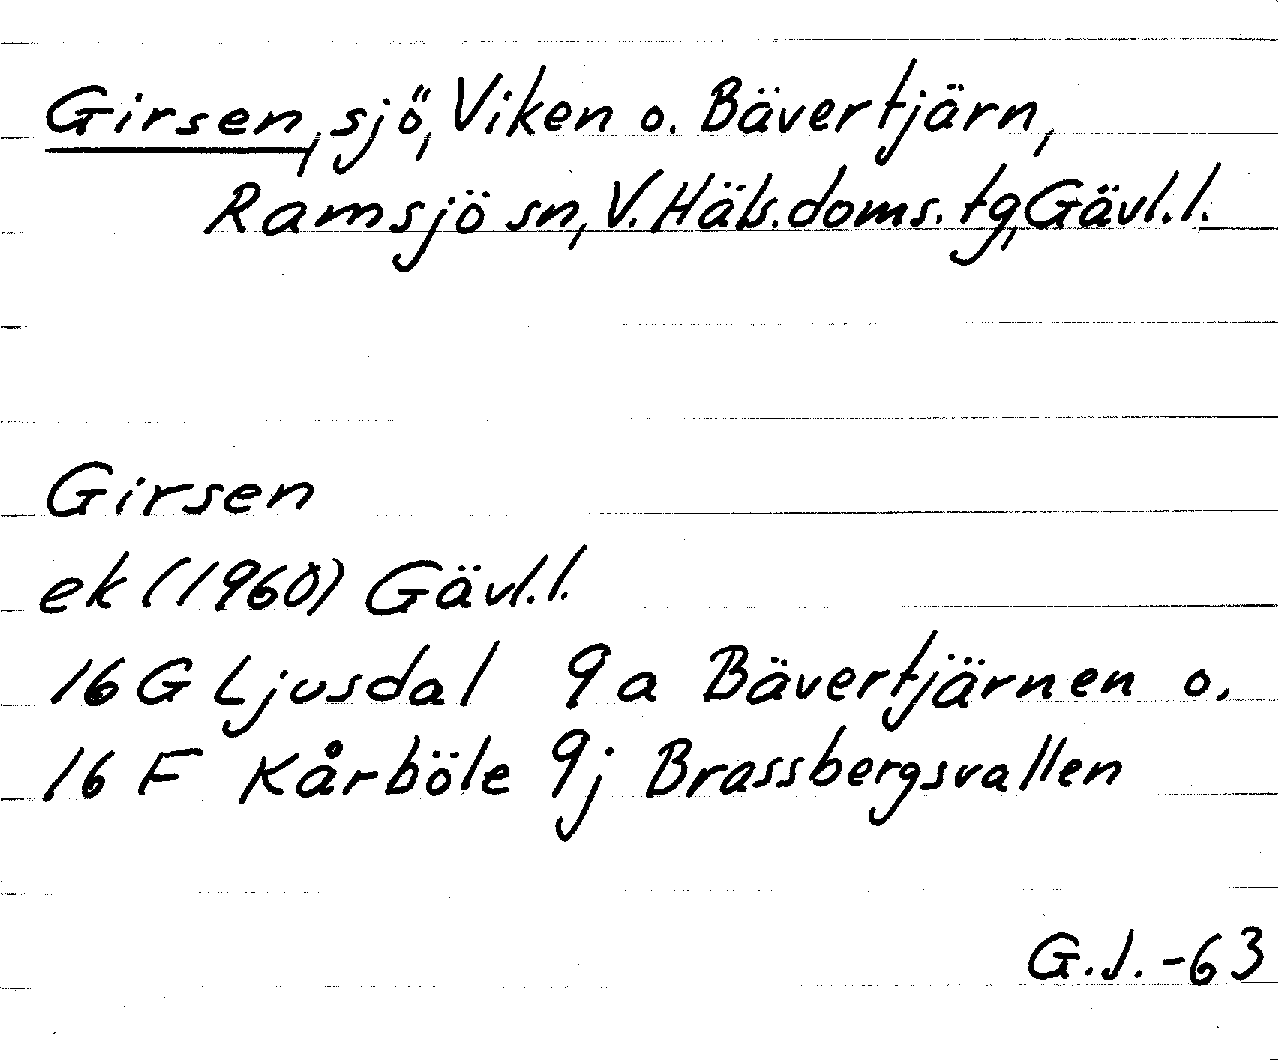 Girsen, sjö, Viken o. Bävertjärn,
Ramsjö sn, V. Häls. doms. tg, Gävl. l.
Girsen
ek (1960) Gävl. l.
16 G Ljusdal 9a Bävertjärnen o.
16 F Kårböle 9j Brassbergsvallen
G.J. -63